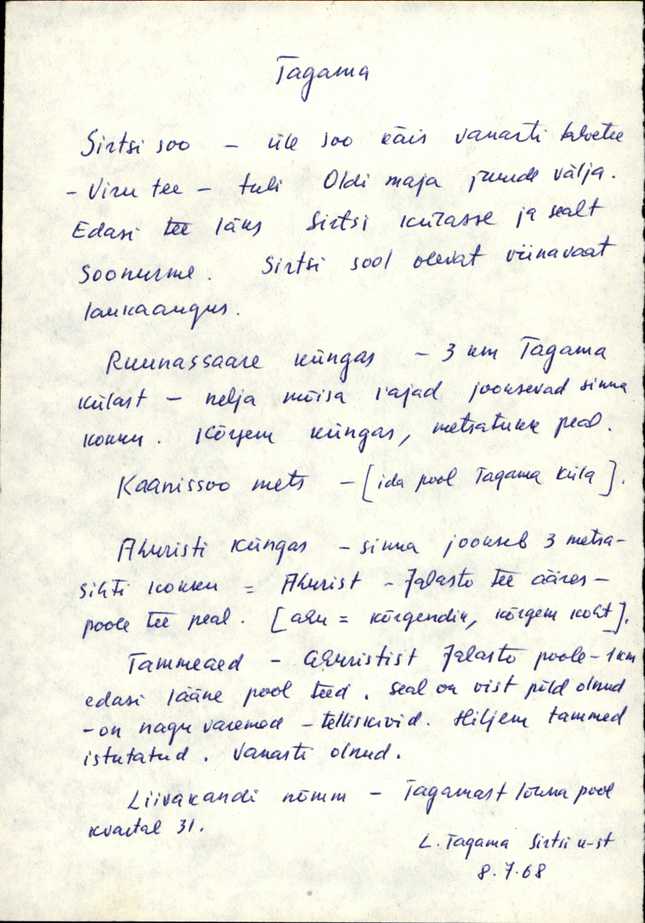 Tagama
Sirtsi soo – üle soo käis vanasti talvetee
– Viru tee – tuli Oldi maja juurde välja.
Edasi tee läks Sirtsi külasse ja sealt
Soonurme. Sirtsi sool olevat viinavaat
laukaaugus.
Ruunassaare küngas – 3 km Tagama
külast – nelja mõisa rajad jooksevad sinna
kokku. Kõrgem küngas, metsatukk peal.
Kaanissoo mets – [ida pool Tagama küla].
Ahuristi küngas – sinna jookseb 3 metsa-
sihti kokku = Ahurist – Jalasto tee ääres –
poole tee peal. [ahu = kõrgendik, kõrgem koht].
Tammeaed – Ahuristist Jalasto poole – 1 km
edasi lääne pool teed. Seal on vist põld olnud
– on nagu varemed – telliskivid. Hiljem tammed
istutatud. Vanasti olnud.
Liivakandi nõmm – Tagamast lõuna pool
kvartal 31.
L. Tagama Sirtsi k-st
8.7.68